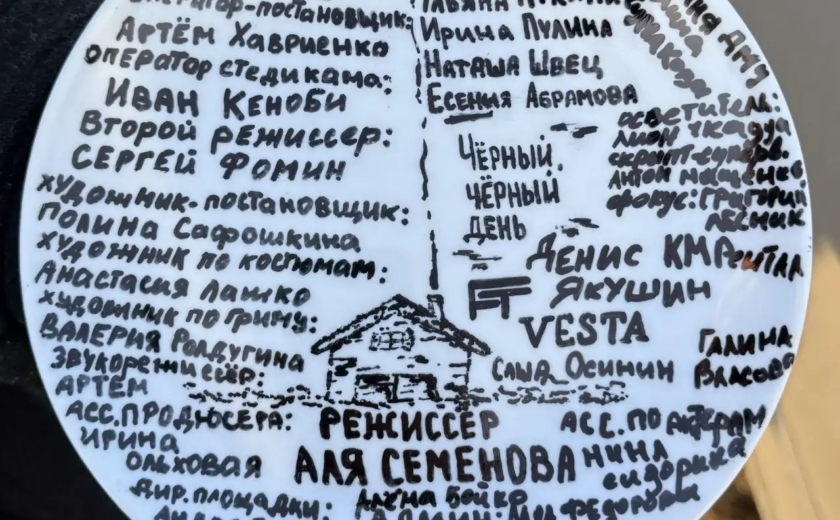 оператор-постановщик:
Артём Хавриенко
оператор стедикама:
Иван Кеноби
Второй режиссер:
Сергей Фомин
художник-постановщик:
Полина Сафошкина
художник по костюмам:
Анастасия Лашко
художник по гриму:
Валерия Ролдугина
Звукорежиссёр:
Артём
Асс. продюсера:
Ирина
Ольховая
Дир. площадки:
Ирина Пулина
Наташа Швец
Есения Абрамова
Чёрный,
чёрный
день
осветитель:
Лион
скрипт-
Антон Мащенко
фокус: Григорий
Лесник
Денис КМР
Якушин
FT
VESTA
Саша Осинин
Галина
Власова
Режиссёр
Аля Семенова
Асс. по актерам
Нина
Сидорина
Алёна Бойко
Федорова